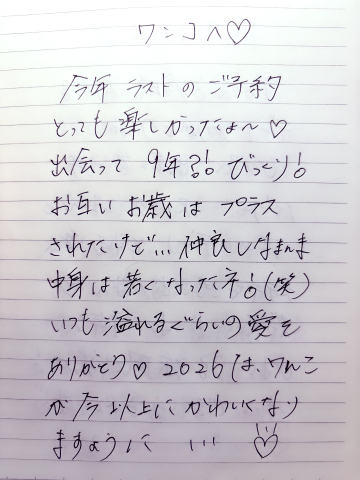 ワンコへ♡
今年 ラストの ご予約
とっても 楽しかったよ〜♡
出会って 9年⁇! びっくり!
お互い お歳は プラス
されたけど... 仲良しなまんま
中身は 若くなったネ!(笑)
いつも 溢れるぐらいの 愛を
ありがとう♡ 2026は、ワんこ
が 今以上に かわいくなり
ますように ...